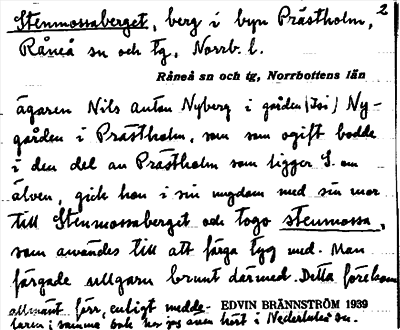 Stenmossaberget, berg i byn Prästholm, 2
Råneå sn och tg, Norrb. l.
Råneå sn och tg, Norrbottens län
ägaren Nils Anton Nyberg i gården Ny-
gården i Prästholm, som som ogift bodde
i den del av Prästholm som ligger S. om
älven, gick han i sin ungdom med sin mor
till Stenmossaberget och togo stenmossa,
som användes till att färga tyg med. Man
färgade ullgarn brunt därmed. Detta förekom
allmänt förr, enligt medde- EDVIN BRÄNNSTRÖM 1939
laren i samma bok har jag även hört i Nederluleå sn.